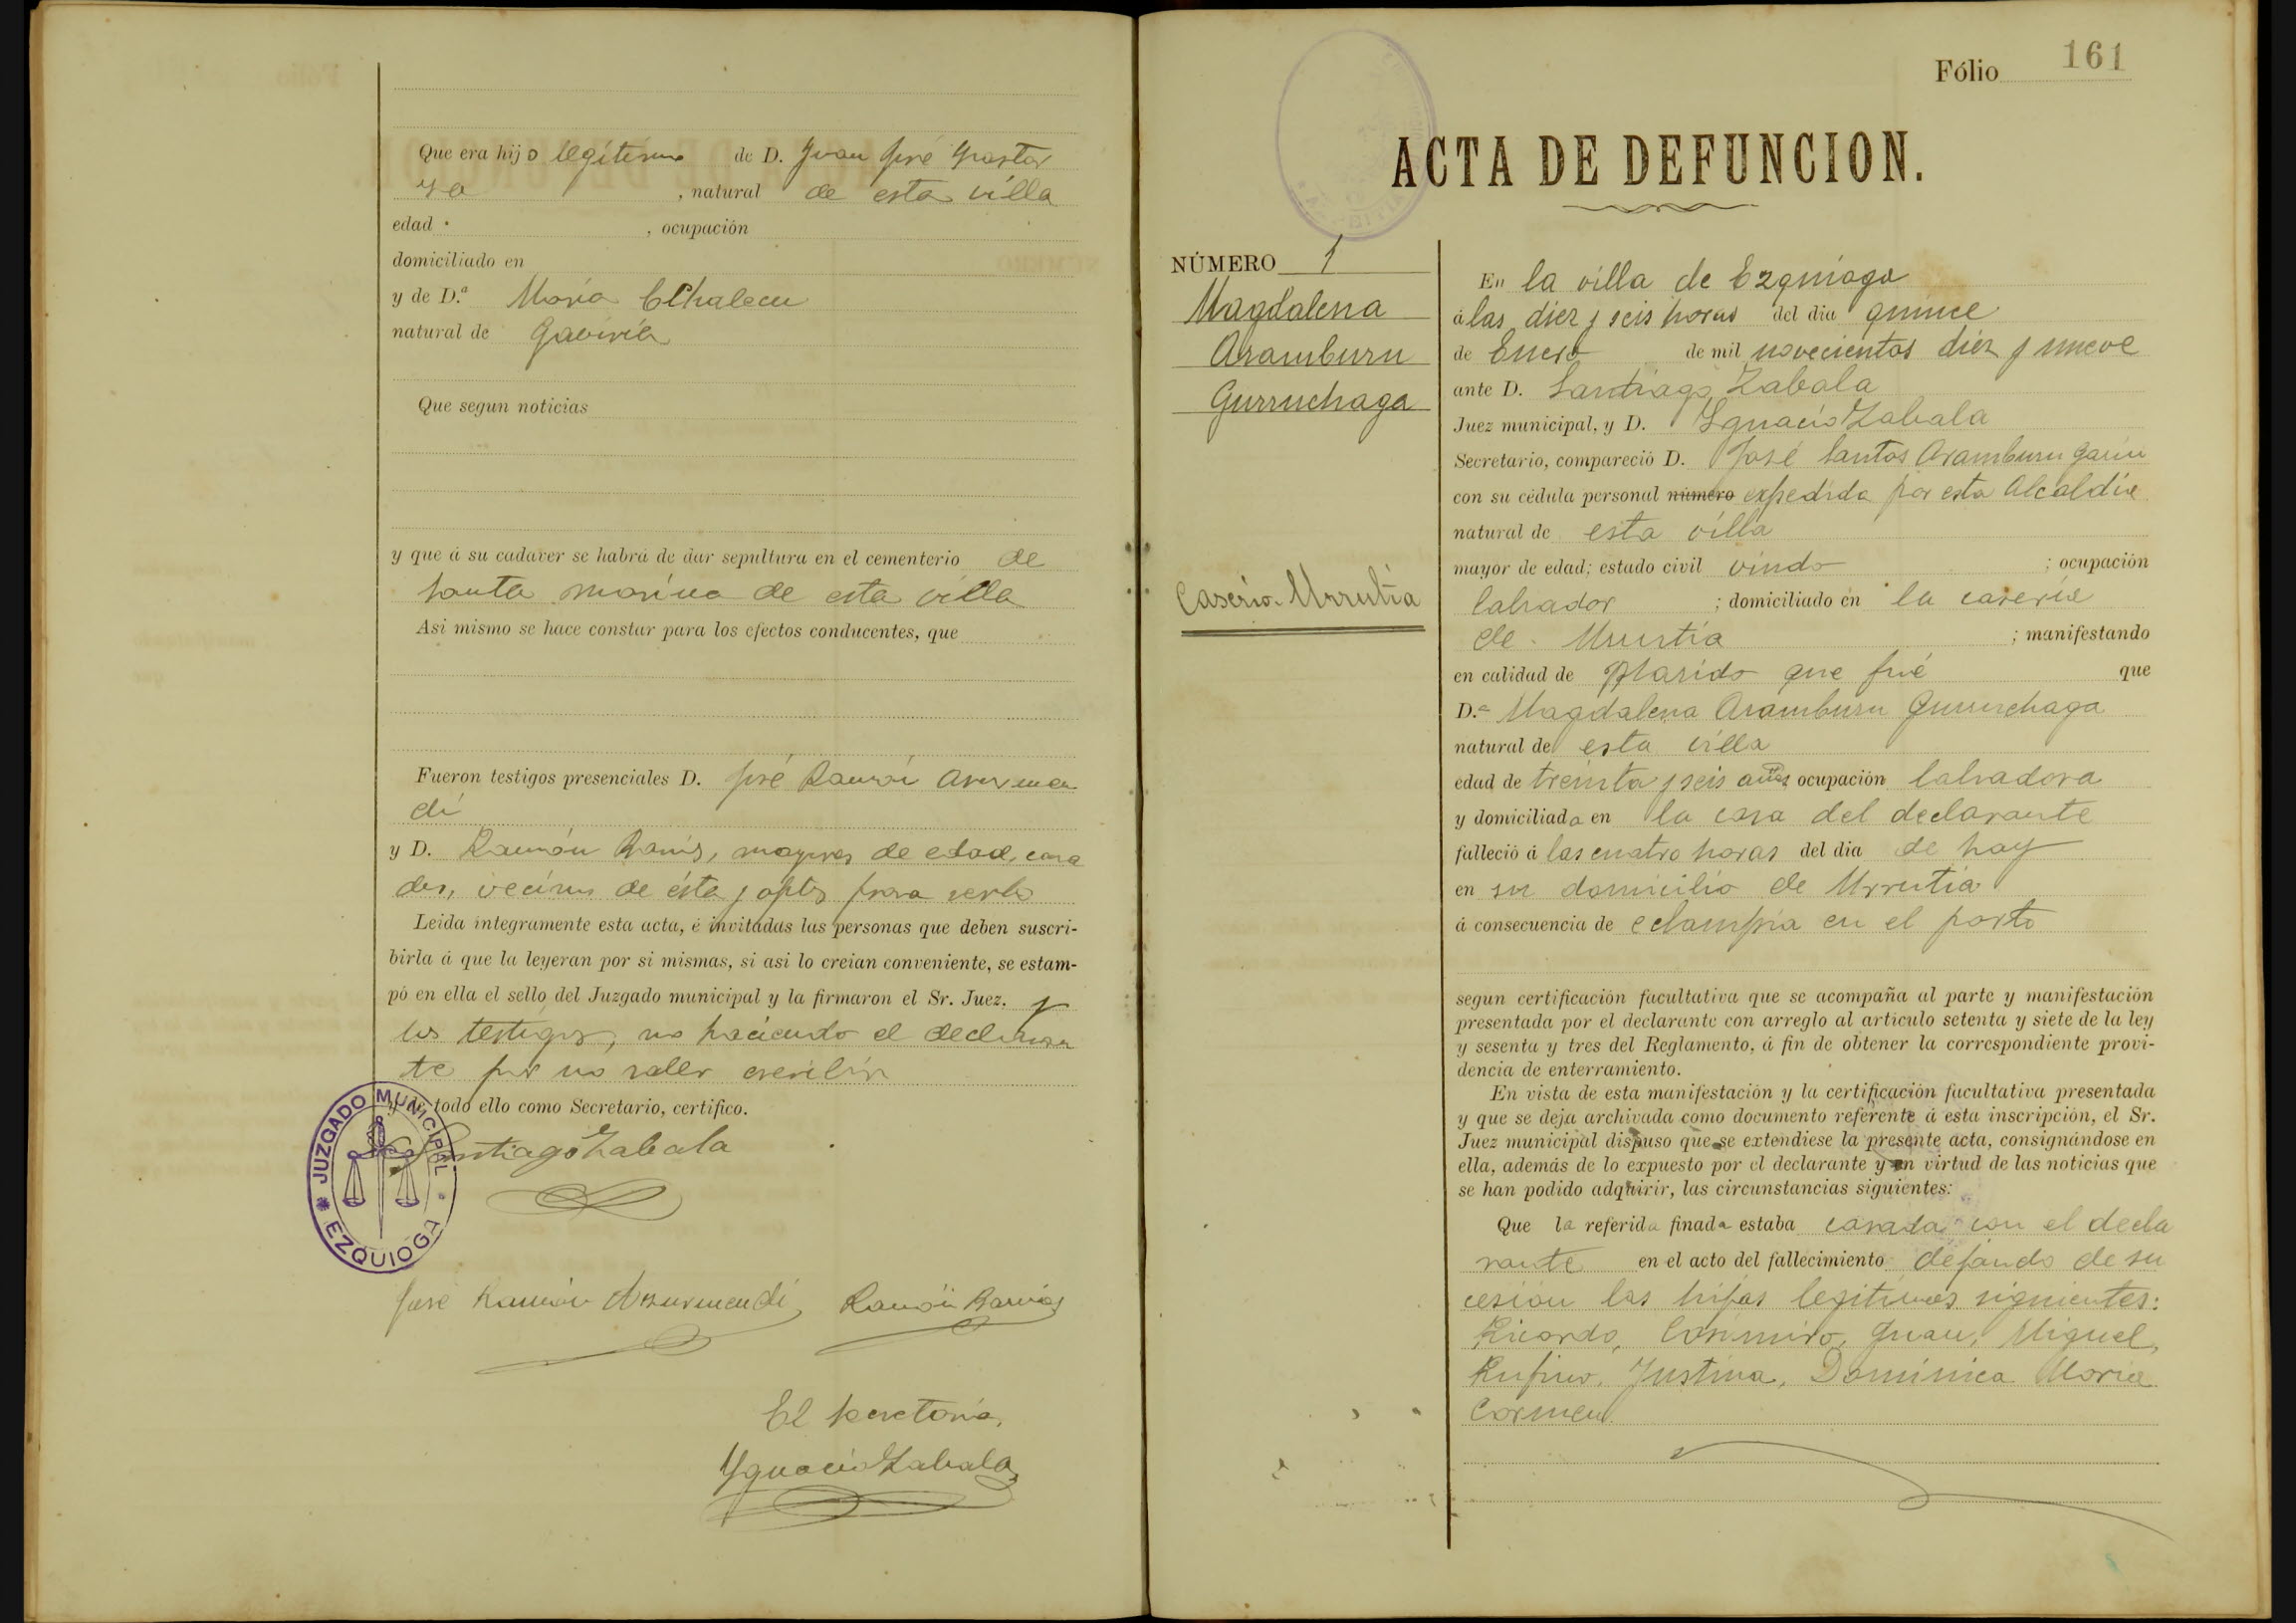 Que era hijo legítimo de D. Juan José Yrastor
za, natural de esta villa
edad , ocupación
domiciliado en
y de D.ª María Echalecu
natural de Gaviria
Que segun noticias
y que á su cadaver se habrá de dar sepultura en el cementerio de
Santa Marina de esta villa
Asi mismo se hace constar para los efectos conducentes, que
Fueron testigos presenciales D. José Ramón Azurmen
di
y D. Ramón Barrios, mayores de edad, casa
dos, vecinos de ésta y aptos para serlo
Leida integramente esta acta, é invitadas las personas que deben suscri-
birla á que la leyeran por si mismas, si asi lo creian conveniente, se estam-
pó en ella el sello del Juzgado municipal y la firmaron el Sr. Juez, y
los testigos, no haciendo el declaran
te por no saber escribir
y de todo ello como Secretario, certifico.
JUZGADO MUNICIPAL
EZQUIOGA
Santiago Zabala
José Ramón Azurmendi Ramón Barrios
El Secretario,
Ygnacio Zabala
Fólio 161
ACTA DE DEFUNCION.
NÚMERO 1
Magdalena
Aramburu
Gurruchaga
Caserio-Urrutia
En la villa de Ezquioga
á las diez y seis horas del dia quince
de Enero de mil novecientos diez y nueve
ante D. Santiago Zabala
Juez municipal, y D. Ygnacio Zabala
Secretario, compareció D. José Santos Aramburu Garin
con su cédula personal número expedida por esta Alcaldia
natural de esta villa
mayor de edad; estado civil viudo ; ocupación
labrador ; domiciliado en la caseria
de Urrutia ; manifestando
en calidad de Marido que fué que
D.ª Magdalena Aramburu Gurruchaga
natural de esta villa
edad de treinta y seis años ocupación labradora
y domiciliada en la casa del declarante
falleció á las cuatro horas del dia de hoy
en su domicilio de Urrutia
á consecuencia de eclampsia en el parto
segun certificación facultativa que se acompaña al parte y manifestación
presentada por el declarante con arreglo al articulo setenta y siete de la ley
y sesenta y tres del Reglamento, á fin de obtener la correspondiente provi-
dencia de enterramiento.
En vista de esta manifestación y la certificación facultativa presentada
y que se deja archivada como documento referente á esta inscripción, el Sr.
Juez municipal dispuso que se extendiese la presente acta, consignándose en
ella, además de lo expuesto por el declarante y en virtud de las noticias que
se han podido adquirir, las circunstancias siguientes:
Que la referida finada estaba casada con el decla
rante en el acto del fallecimiento dejando de su
cesión los hijos legitimos siguientes:
Ricardo, Casimiro, Juan, Miguel,
Rufino, Justina, Dominica Maria
Carmen